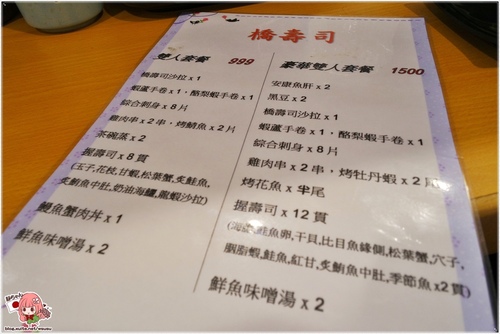 橋壽司
雙人套餐 999
橋壽司沙拉 x 1
蝦蘆手卷 x 1, 酪梨蝦手卷 x 1
綜合刺身 x 8片
雞肉串 x 2串, 烤鯖魚 x 2片
茶碗蒸 x 2
握壽司 x 8貫
(玉子,花枝,甘蝦,松葉蟹,炙鮭魚,
炙鮪魚中肚,奶油海鱺,龍蝦沙拉)
鰻魚蟹肉丼 x 1
鮮魚味噌湯 x 2
豪華雙人套餐 1500
安康魚肝 x 2
黑豆 x 2
橋壽司沙拉 x 1
蝦蘆手卷 x 1, 酪梨蝦手卷 x 1
綜合刺身 x 8片
雞肉串 x 2串, 烤牡丹蝦 x 2
烤花魚 x 半尾
握壽司 x 12貫
鮭魚卵,干貝,比目魚緣側,松葉蟹,穴子,
胭脂蝦,鮭魚,紅甘,炙鮪魚中肚,季節魚 x2貫)
鮮魚味噌湯 x 2